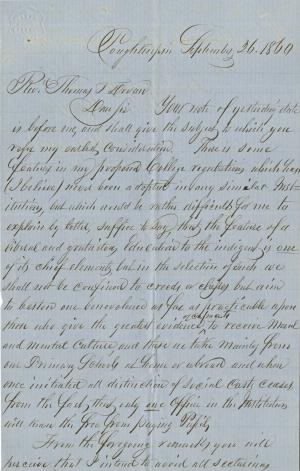 Poughkeepsie September 26. 1860
Rev. Thomas
Dear Sir Your note of yesterday's date
is before me, and shall give the subject to which you
refer my earliest consideration. There is some
features in my proposed College regulations which have
(I believe) never been adopted in any similar Inst-
itution, but which would be rather difficult for me to
explain by letter, suffice to say, that the feature of a
liberal and gratuitous education to the indigent is one
of its chief elements, but in the selection of such we
shall not be confined to creeds or but aim
to bestow our benevolence as far as practicable upon
those who give the greatest evidence of capacity to receive Moral
and mental Culture, and these we take mainly from
our Primary Schools at home or abroad and when
once initiated all distinction of Social Caste ceases
from the fact, that only one Officer in the Institution
will know the free from paying Pupils.
From the foregoing remarks you will
perceive that I intend to avoid all sectarian